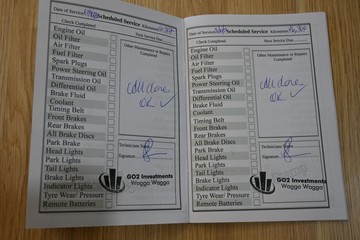 Date of Service Scheduled Service Kilometres
Check Completed
Next Service Due
Engine Oil
Oil Filter
Air Filter
Fuel Filter
Spark Plugs
Power Steering Oil
Transmission Oil
Differential Oil
Brake Fluid
Coolant
Timing Belt
Front Brakes
Rear Brakes
All Brake Discs
Park Brake
Head Lights
Park Lights
Tail Lights
Brake Lights
Indicator Lights
Tyre Wear/ Pressure
Remote Batteries
Other Maintenance or Repairs
Completed
All done
OK
Technicians Name
Signature
GO2 Investments
Wagga Wagga
Date of Service Scheduled Service Kilometres
Check Completed
Next Service Due
Engine Oil
Oil Filter
Air Filter
Fuel Filter
Spark Plugs
Power Steering Oil
Transmission Oil
Differential Oil
Brake Fluid
Coolant
Timing Belt
Front Brakes
Rear Brakes
All Brake Discs
Park Brake
Head Lights
Park Lights
Tail Lights
Brake Lights
Indicator Lights
Tyre Wear/ Pressure
Remote Batteries
Other Maintenance or Repairs
Completed
All done
OK
Technicians Name
Signature
GO2 Investments
Wagga Wagga